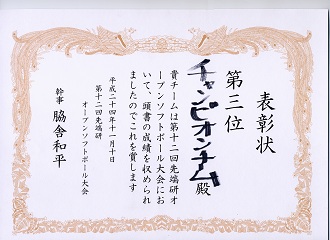 表彰状
第三位
チャンピオンチーム殿
貴チームは第十二回先端研オ
ープンソフトボール大会にお
いて、頭書の成績を収められ
ましたのでこれを賞します
平成二十四年十一月十日
第十二回先端研
オープンソフトボール大会
幹事 脇舎和平